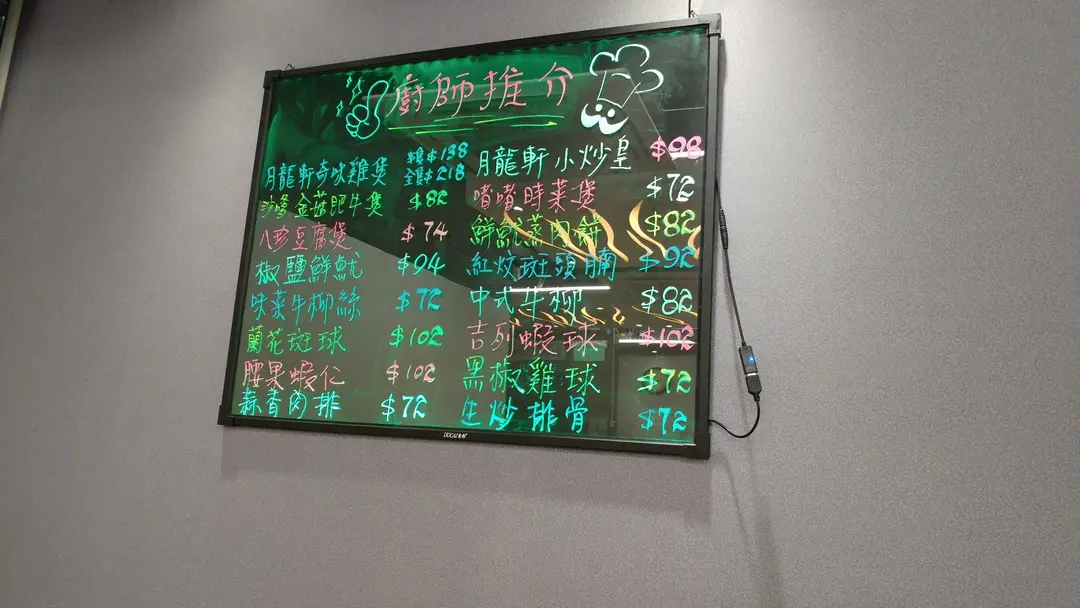 廚師推介
月龍軒奇味雞煲 半隻 $138
全隻 $218
沙爹金菇肥牛煲 $82
八珍豆腐煲 $74
椒鹽鮮魷 $94
味菜牛柳絲 $72
蘭花斑球 $102
腰果蝦仁 $102
蒜香肉排 $72
月龍軒小炒皇 $98
啫啫時菜煲 $72
鮮魷蒸肉餅 $82
紅炆斑頭腩 $92
中式牛柳 $82
吉列蝦球 $102
黑椒雞球 $72
生炒排骨 $72